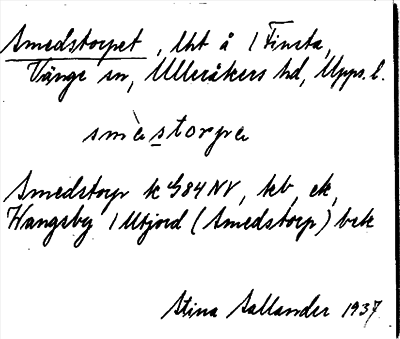 Smedstorpet, lht å 1 Finsta,
Vänge sn, Ulleråkers hd, Upps. l.
smèstorpa
Smedstorp k G84NV, kb, ek,
Hangsby 1 Utjord (Smedstorp) bek
Stina Sallander 1937